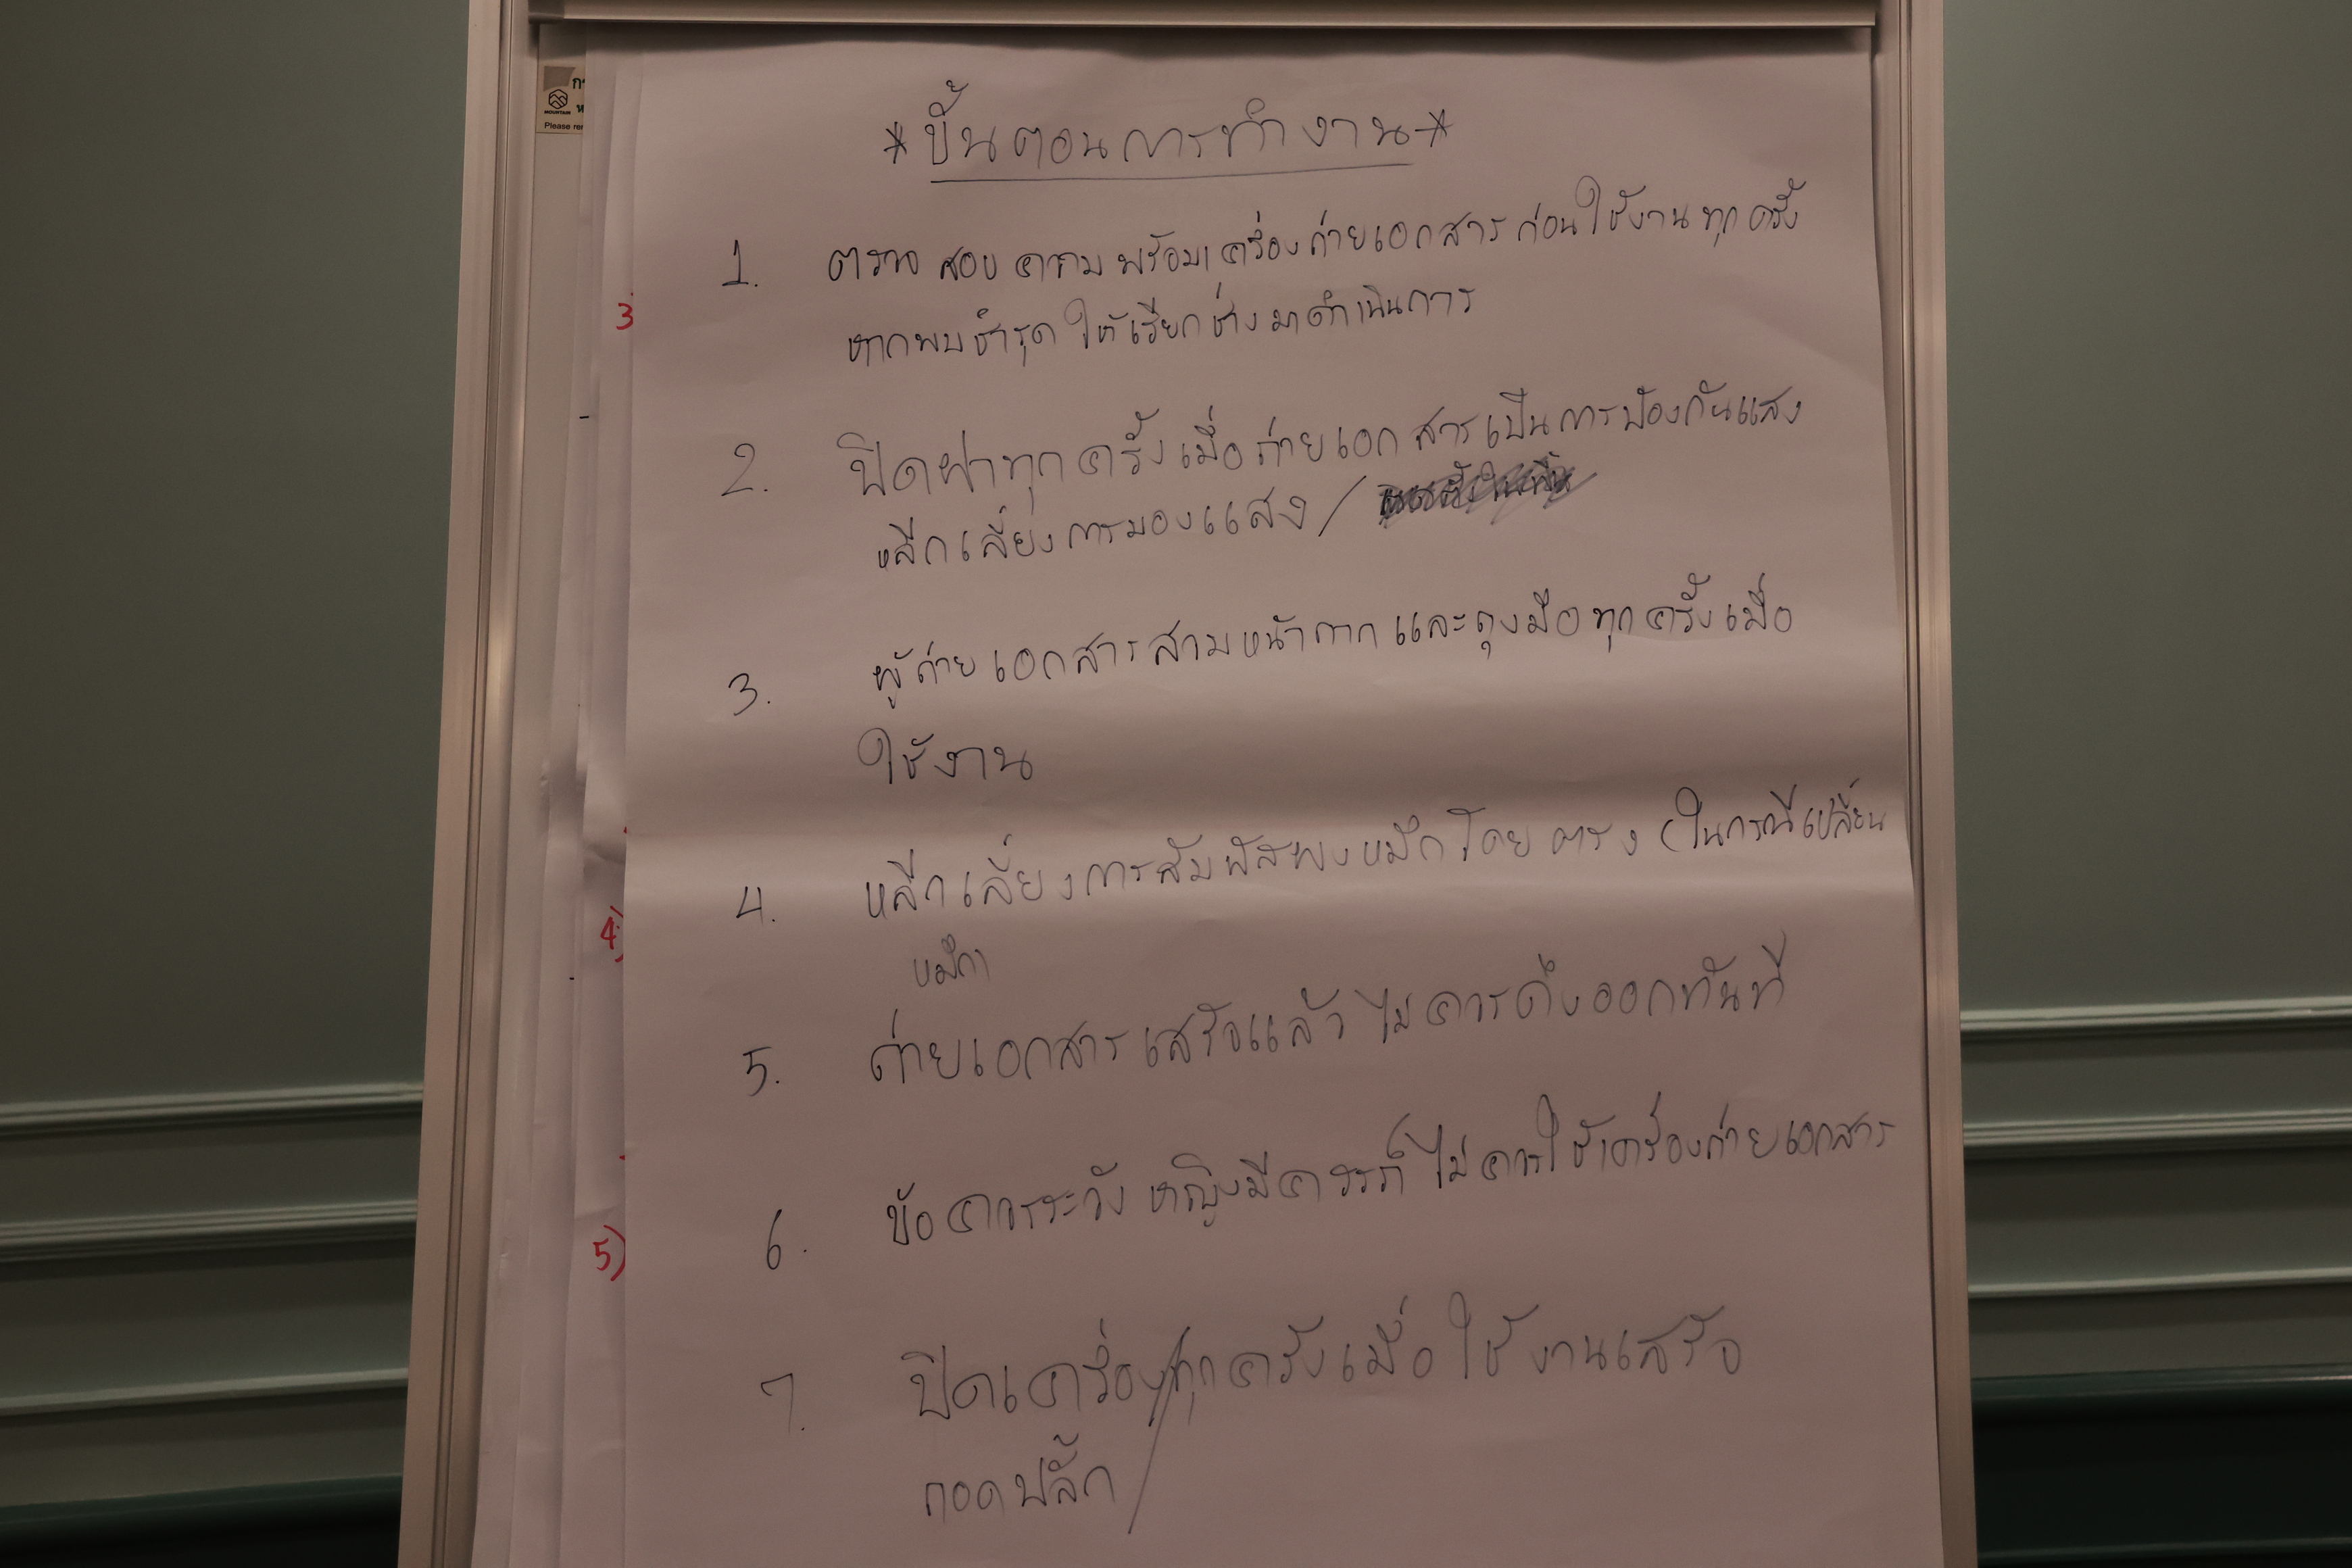 *ขั้นตอนการทำงาน*
1. ตรวจสอบความพร้อมเครื่องถ่ายเอกสารก่อนใช้งานทุกครั้ง
หากพบชำรุด ให้เรียกช่างมาดำเนินการ
2. ปิดฝาทุกครั้งเมื่อถ่ายเอกสารเป็นการป้องกันแสง
หลีกเลี่ยงการมองแสง /
3. ผู้ถ่ายเอกสารสวมหน้ากากและถุงมือทุกครั้งเมื่อ
ใช้งาน
4. หลีกเลี่ยงการสัมผัสผงหมึกโดยตรง (ในกรณีเปลี่ยน
หมึก)
5. ถ่ายเอกสารเสร็จแล้วไม่ควรดึงออกทันที
6. ข้อควรระวัง หญิงมีครรภ์ ไม่ควรใช้เครื่องถ่ายเอกสาร
7. ปิดเครื่อง/ทุกครั้งเมื่อใช้งานเสร็จ
ถอดปลั๊ก/
3
4)
5)
MOUNTAIN